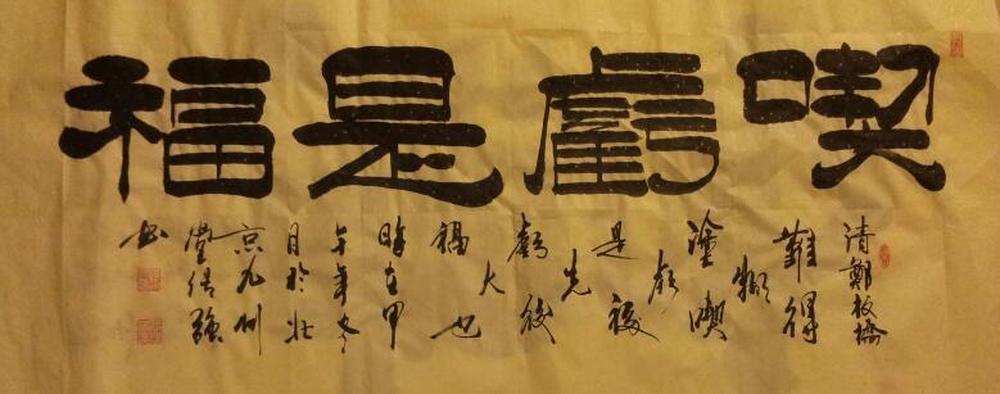 喫虧是福
清鄭板橋
難得
糊
塗喫
虧
是福
先
虧後
大
福也
時在甲
午年冬
月於北
京九州
堂
書